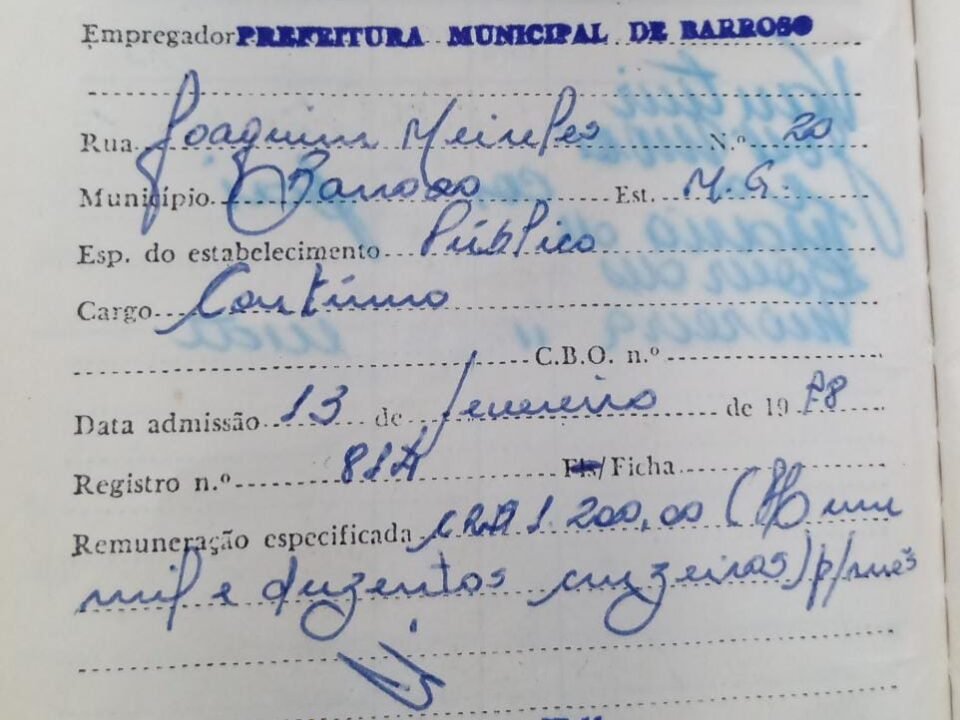 Empregador PREFEITURA MUNICIPAL DE BARROSO
Rua Joaquim Meireles N.º 20
Município Barroso Est. M.G.
Esp. do estabelecimento Público
Cargo Contínuo
C.B.O. n.º
Data admissão 13 de fevereiro de 19 78
Registro n.º 81A Fls/Ficha
Remuneração especificada CR$ 1.200,00 (Hum
mil e duzentos cruzeiros) p/mês